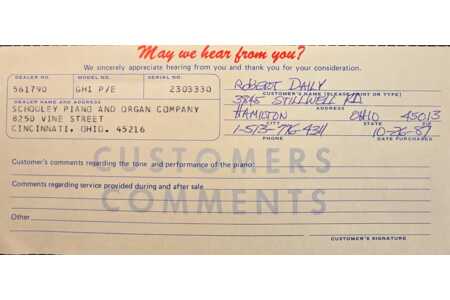 May we hear from you?
We sincerely appreciate hearing from you and thank you for your consideration.
DEALER NO. MODEL NO. SERIAL NO.
561790 GH1 P/E 2303330
DEALER NAME AND ADDRESS
SCHOOLEY PIANO AND ORGAN COMPANY
8250 VINE STREET
CINCINNATI, OHIO, 45216
ROBERT DAILY
CUSTOMER'S NAME (PLEASE PRINT OR TYPE)
3845 STILLWELL RD
ADDRESS
HAMILTON OHIO 45013
CITY STATE ZIP
1-513-776-4311 10-26-87
PHONE DATE PURCHASED
Customer's comments regarding the tone and performance of the piano:
CUSTOMERS
Comments regarding service provided during and after sale
COMMENTS
Other
CUSTOMER'S SIGNATURE